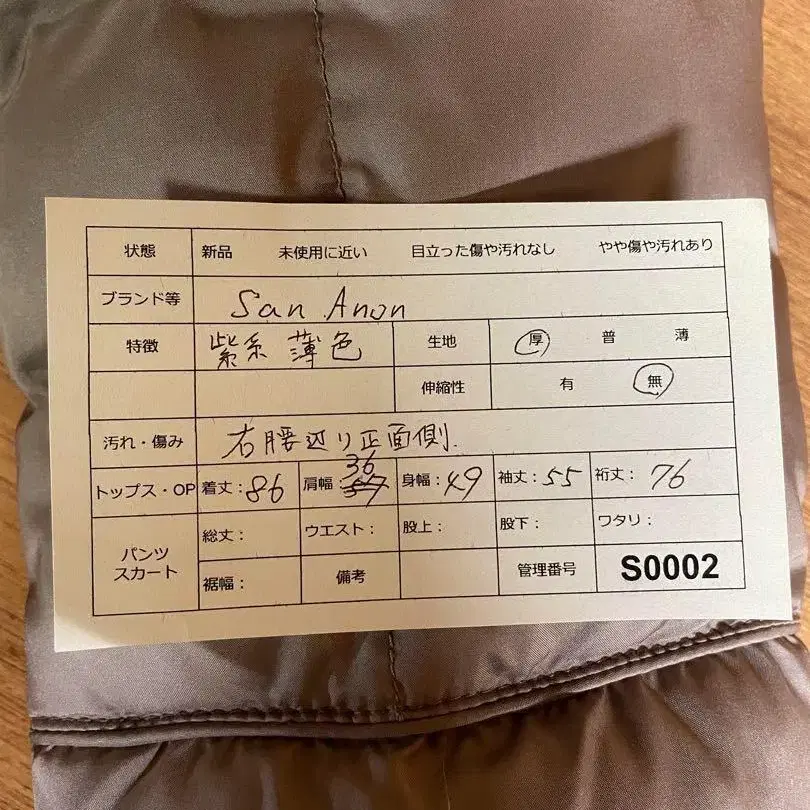 状態 新品 未使用に近い 目立った傷や汚れなし やや傷や汚れあり
ブランド等 San Anon
特徴 紫系 薄色 生地 厚 普 薄
伸縮性 有 無
汚れ・傷み 右腰辺り正面側.
トップス・OP 着丈:86 肩幅:36 身幅:49 袖丈:55 裄丈:76
パンツ スカート 総丈: ウエスト: 股上: 股下: ワタリ:
裾幅: 備考 管理番号 S0002